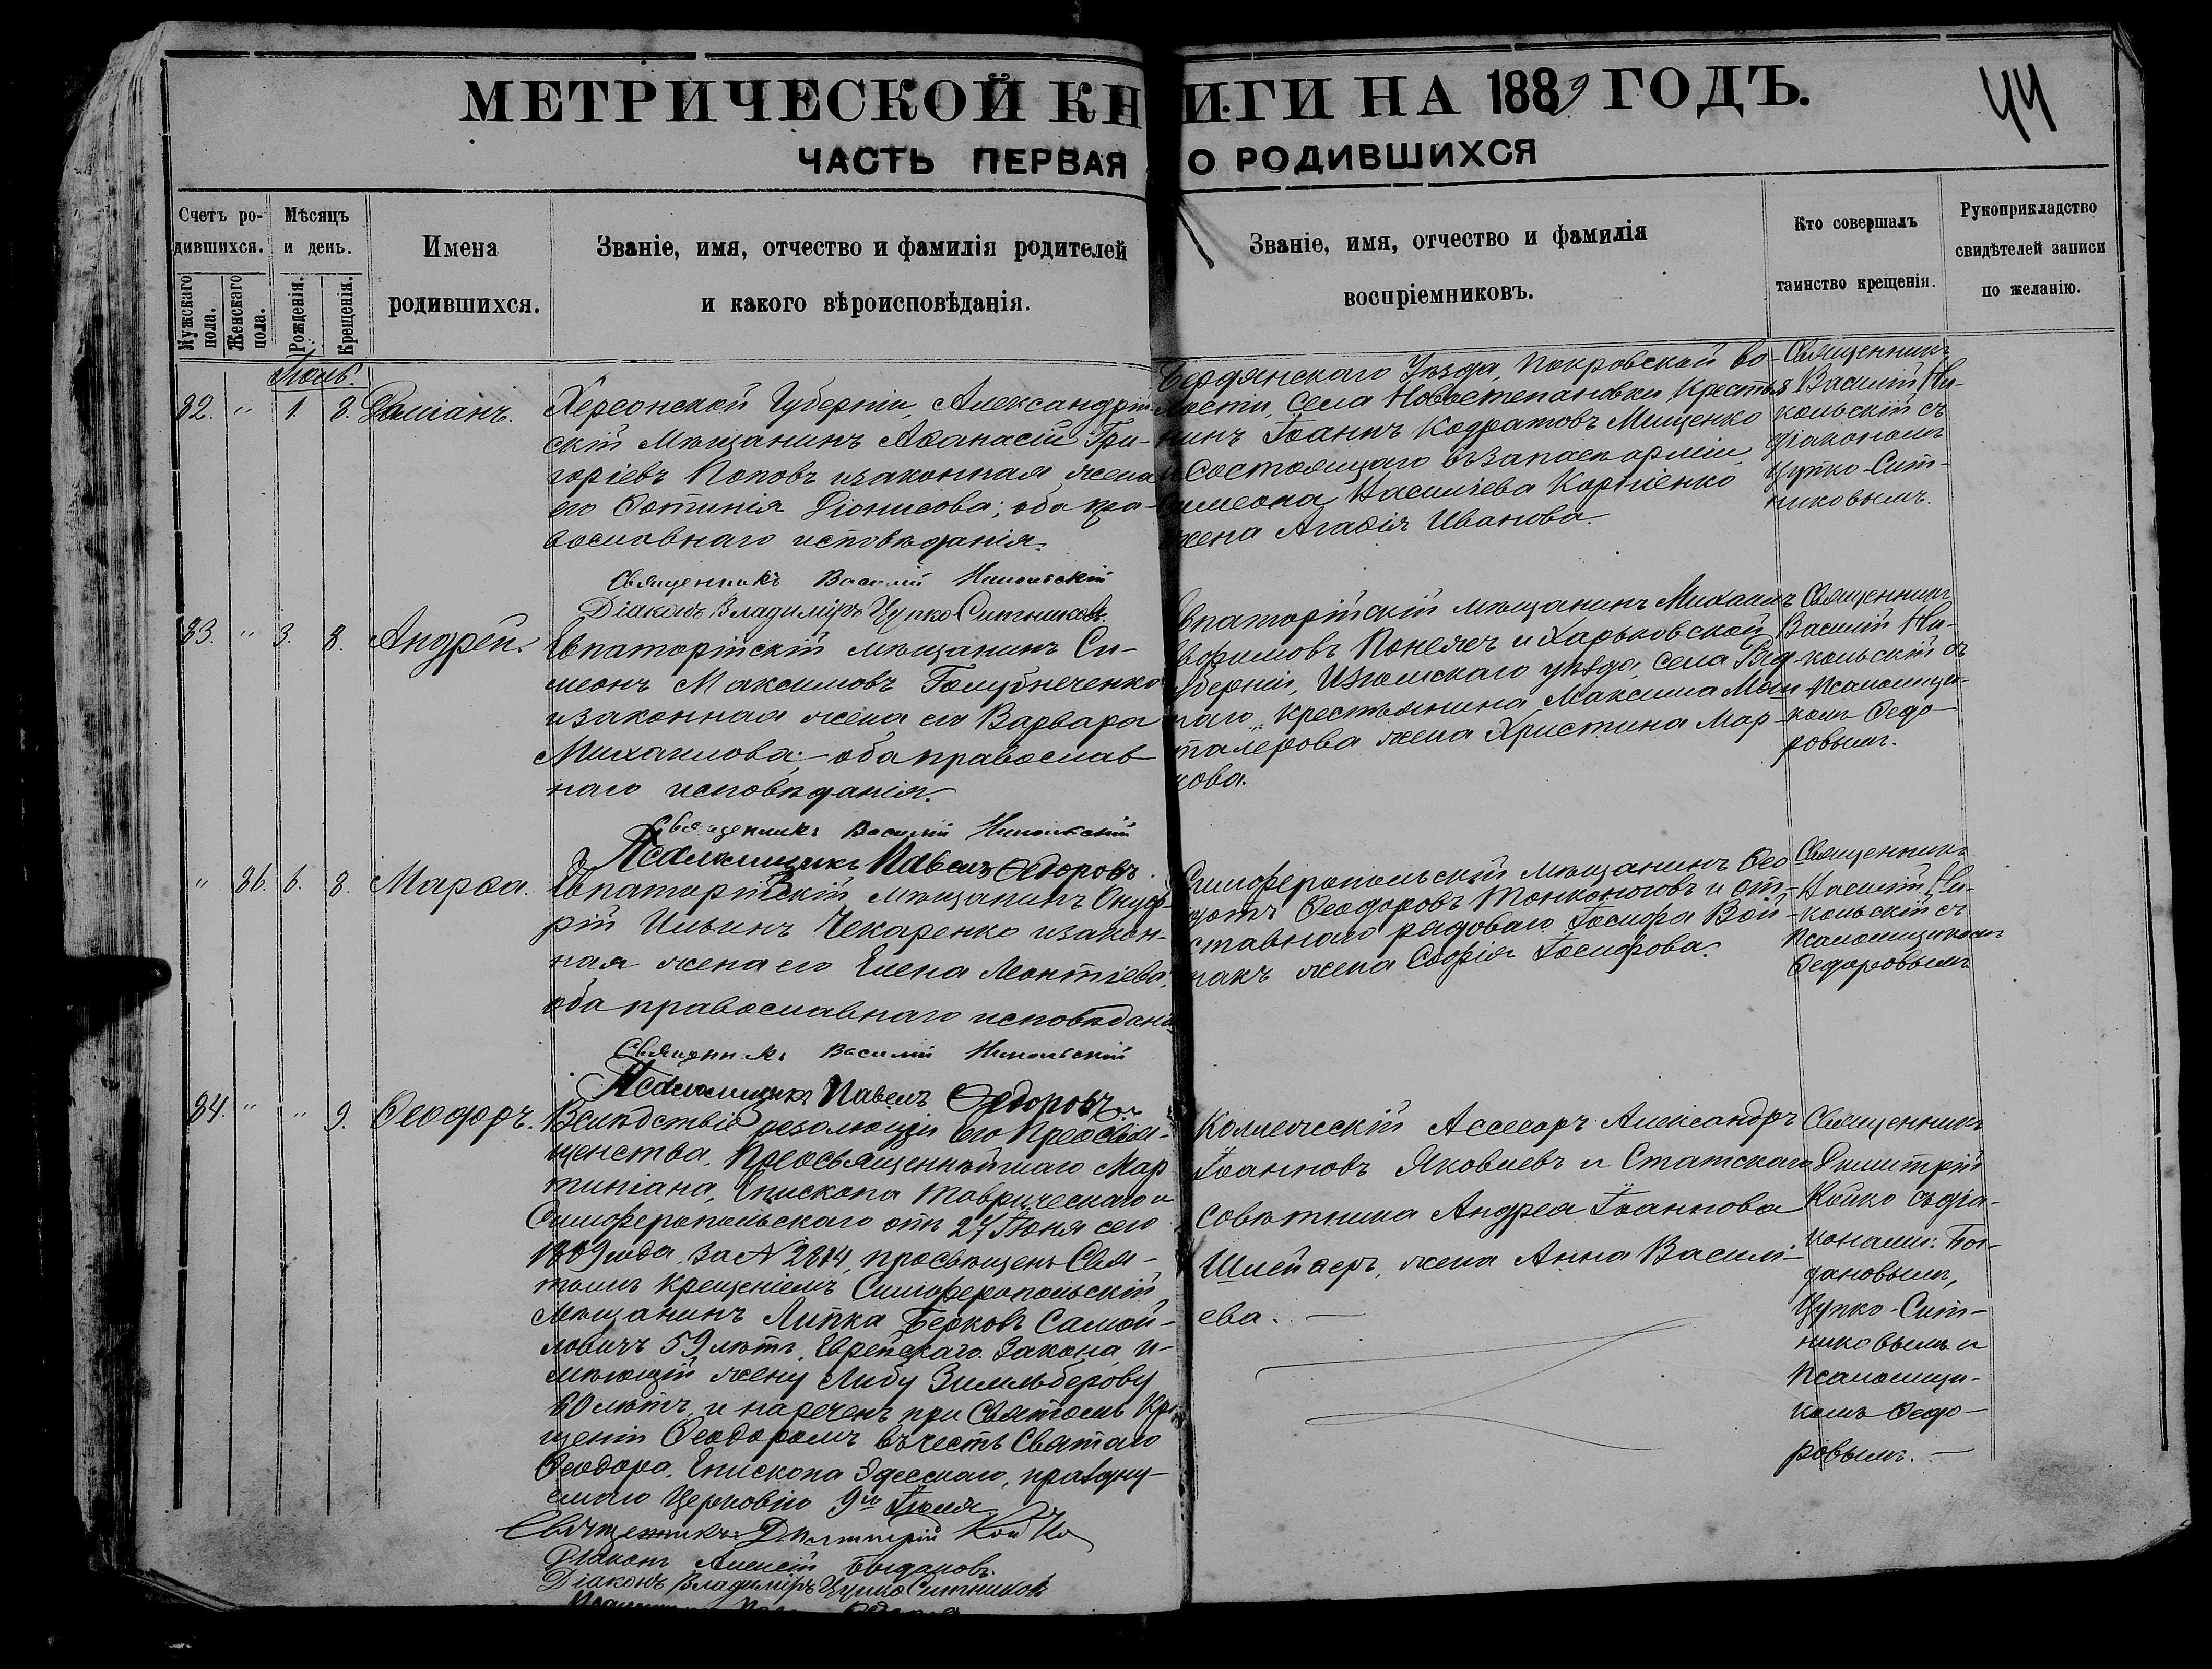 МЕТРИЧЕСКОЙ КНИГИ НА 1889 ГОДЪ.
44
ЧАСТЬ ПЕРВАЯ О РОДИВШИХСЯ
Счетъ ро-
дившихся.
Мужскаго пола.
Женскаго пола.
Мѣсяцъ
и день.
Рожденія.
Крещенія.
Имена
родившихся.
Званіе, имя, отчество и фамилія родителей
и какого вѣроисповѣданія.
Званіе, имя, отчество и фамилія
воспріемниковъ.
Кто совершалъ
таинство крещенія.
Рукоприкладство
свидѣтелей записи
по желанію.
Іюль.
82. " 1. 8. Даміанъ.
Херсонской Губерніи, Александрій-
скій мѣщанинъ Аѳанасій Гри-
горіевъ Поповъ и законная жена
его Фотинія Діонисова; оба пра-
вославнаго исповѣданія.
Священникъ Василій Никольскій
Діаконъ Владиміръ Цупко Ситниковъ.
Бердянскаго Уѣзда, Покровской во-
лости, Села Новостепановки Крестья
нинъ Іоаннъ Кодратовъ Мищенко
и Состоящаго въ запасѣ арміи
Симеона Василіева Корніенко
жена Агафія Иванова.
Священникъ
Василій Ни-
кольскій съ
діакономъ
Цупко-Сит-
никовымъ.
83. " 3. 8. Андрей.
Евпаторійскій мѣщанинъ Си-
меонъ Максимовъ Голубниченко
и законная жена его Варвара
Михаилова; оба православ
наго исповѣданія.
Священникъ Василій Никольскій
Псаломщикъ Павелъ Ѳедоровъ.
Евпаторійскій мѣщанинъ Михаилъ
и Харьковской
губерніи, Изюмскаго уѣзда, Села
крестьянина Максима
жена Христина Мар-
кова.
Священникъ
Василій Ни-
кольскій съ
Псаломщи-
комъ Ѳедо-
ровымъ.
" 86. 6. 8. Марѳа.
Евпаторійскій мѣщанинъ Онуф-
рій Ильинъ Чекаренко и закон-
ная жена его Елена Леонтіева,
оба православнаго исповѣдані
Священникъ Василій Никольскій
Псаломщикъ Павелъ Ѳедоровъ
Симферопольскій мѣщанинъ Ѳео
дотъ Ѳеодоровъ Тонконоговъ и от-
ставнаго рядоваго Іосифа Вой-
накъ жена Софія Іосифова.
Священникъ
Василій Ни-
кольскій съ
Псаломщикомъ
Ѳедоровымъ
84. " " 9. Ѳеодоръ.
Вслѣдствіе резолюціи Его Преосвя-
щенства, Преосвященнѣйшаго Мар
тиніана, Епископа Таврическаго и
Симферопольскаго отъ 27 Іюня сего
1889 года за № 2814, просвѣщенъ Свя-
тымъ крещеніемъ Симферопольскій
мѣщанинъ Липка Берковъ Самой-
ловичъ 59 лѣтъ, Еврейскаго Закона, и-
мѣющій жену Либу Зильберову
60 лѣтъ, и нареченъ при Святомъ Кре
щеніи Ѳеодоромъ въ честь Святаго
Ѳеодора, Епископа Эдесскаго, праздну-
емаго Церковію 9го Іюля
Священникъ Димитрій Койко
Діаконъ Алексій Богдановъ.
Діаконъ Владиміръ Цупко Ситниковъ
Коллежскій Ассесоръ Александръ
Іоанновъ Яковлевъ и Статскаго
Совѣтника Андрея Іоаннова
жена Анна Василі-
ева.
Священникъ
Димитрій
Койко съ діа-
конами: Бог-
дановымъ,
Цупко-Сит-
никовымъ и
Псаломщи-
комъ Ѳедо-
ровымъ.